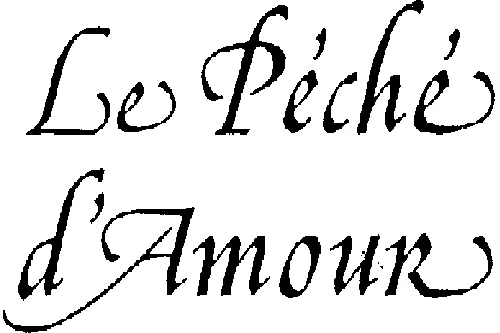 Le Péché
d'Amour